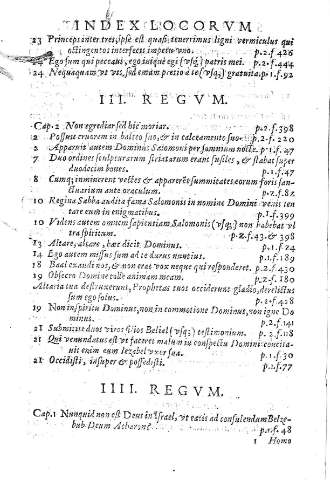 INDEX LOCORVM
23 Princeps inter tres, ipse est quasi tenerrimus ligni vermiculus qui
octingentos interfecit impetu uno. p.2.f 426
24 Ego sum qui peccaui, ego iniquè egi (vsq;) patris mei. p.2.f.444
24 Nequaquam vt vis, sed emam pretio a te (vsq;) gratuita. p.1.f.92
III. REGVM.
Cap. 2 Non egrediar sed hic moriar. p.2.f.398
2 Posuit cruorem in balteo suo, & in calceamento suo. p.2.f.220
2 Apparuit autem Dominus Salomoni per somnium nocte. p.1.f.47
7 Duo ordines sculpturarum striatarum erant fusiles, & stabat super
duodecim boues. p.1.f.47
8 Cumq; eminerent vectes & apparerẽt summitates eorum foris san-
ctuarium ante oraculum. p.2.f.82
10 Regina Sabba audita fama Salomonis in nomine Domini venit ten
tare eum in enigmatibus. p.1.f.399
10 Videns autem omnem sapientiam Salomonis (vsq;) non habebat vl
tra spiritum. p.2.f.43.& 398
13 Altare, altare, hæc dicit Dominus. p.1.f 24
14 Ego autem missus sum ad te durus nuntius. p.1.f.189
18 Baal exaudi nos, & non erat vox neque qui responderet. p.2.f.430
19 Obsecro Domine tolle animam meam. p.2.f.180
Altaria tua destruxerunt, Prophetas tuos occiderunt gladio, derelictus
sum ego solus. p.2.f.428
19 Non in spiritu Dominus, non in commotione Dominus, non igne Do
minus. p.2.f.141
21 Submittite duos viros filios Belial (vsq;) testimonium. p.2.f.118
21 Qui venundatus est vt faceret malum in conspectu Domini concita-
uit enim eum Iezabel vxor sua. p.1.f.30
21 Occidisti, insuper & possedisti. p.2.f.77
IIII. REGVM.
Cap.1 Nunquid non est Deus in Israel, vt eatis ad consulendum Belze-
bub Deum Acharon? p.1.f.48
1 Homo